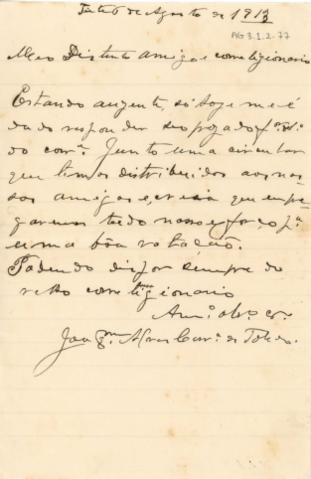 6 de Agosto de 1913
AG 3.1.2.77
Meo Distinto amigo e correligionario
Estando auzente, só hoje me é
dado responder seo prezado
do corr.e Junto uma circular
que temos distribuido aos nos-
sos amigos e, creia que empre-
garemos todo nosso esforço p.a
uma bôa votação.
Podendo dispor sempre do
velho correligionario
Am.o obr.o
Joaq.m Alves de Toledo.